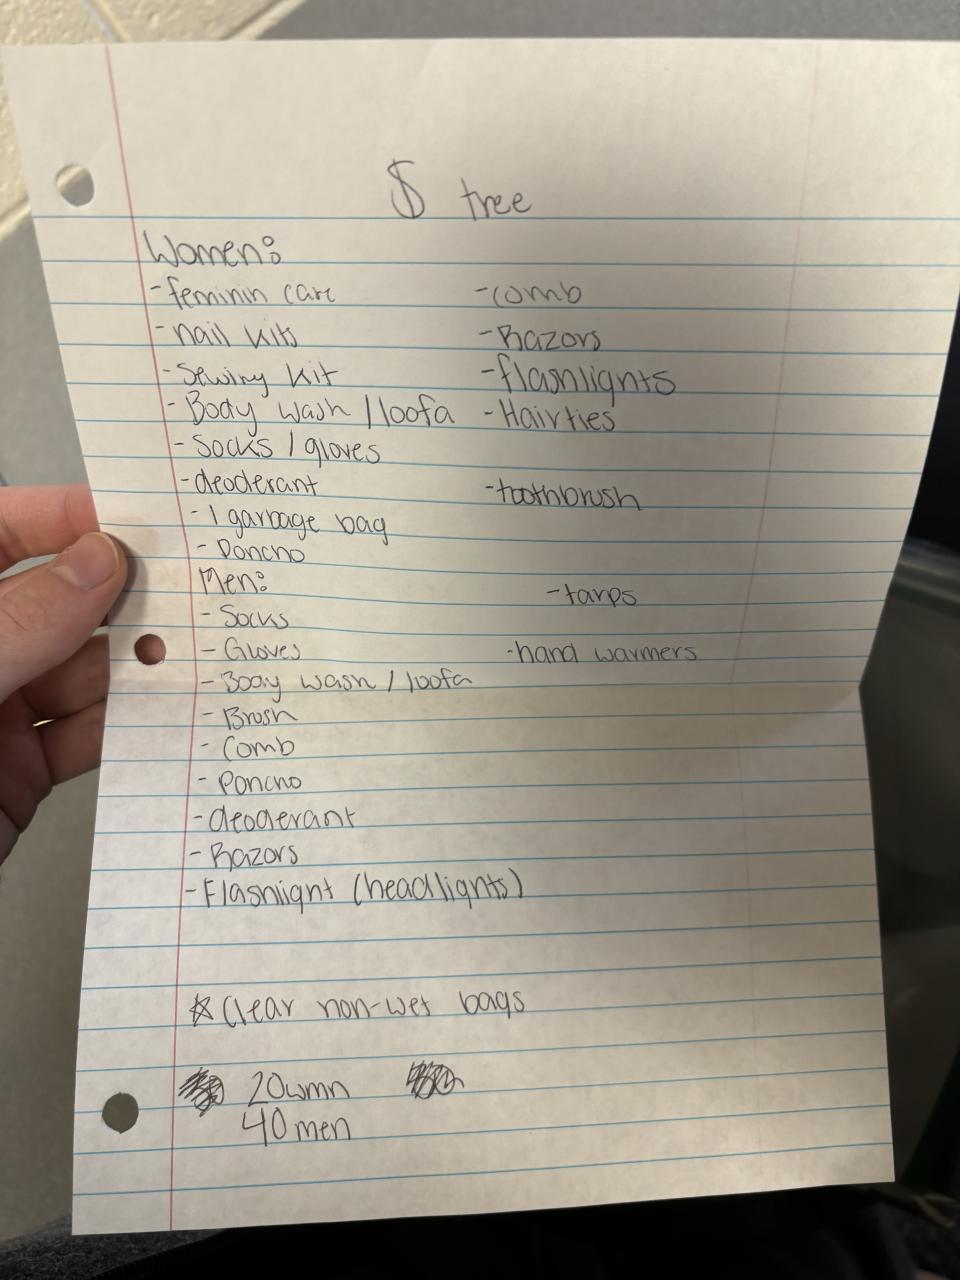 $ tree
Women:
-feminin care -comb
-nail kits -Razors
-Sewing kit -flashlights
-Body wash / loofa -Hairties
-Socks / gloves
-deoderant -toothbrush
-1 garbage bag
-Poncho
Men: -tarps
-Socks
-Gloves -hand warmers
-Body wash / loofa
-Brush
-Comb
-Poncho
-deoderant
-Razors
-Flashlight (headlights)
☆ Clear non-wet bags
20 wmn
40 men